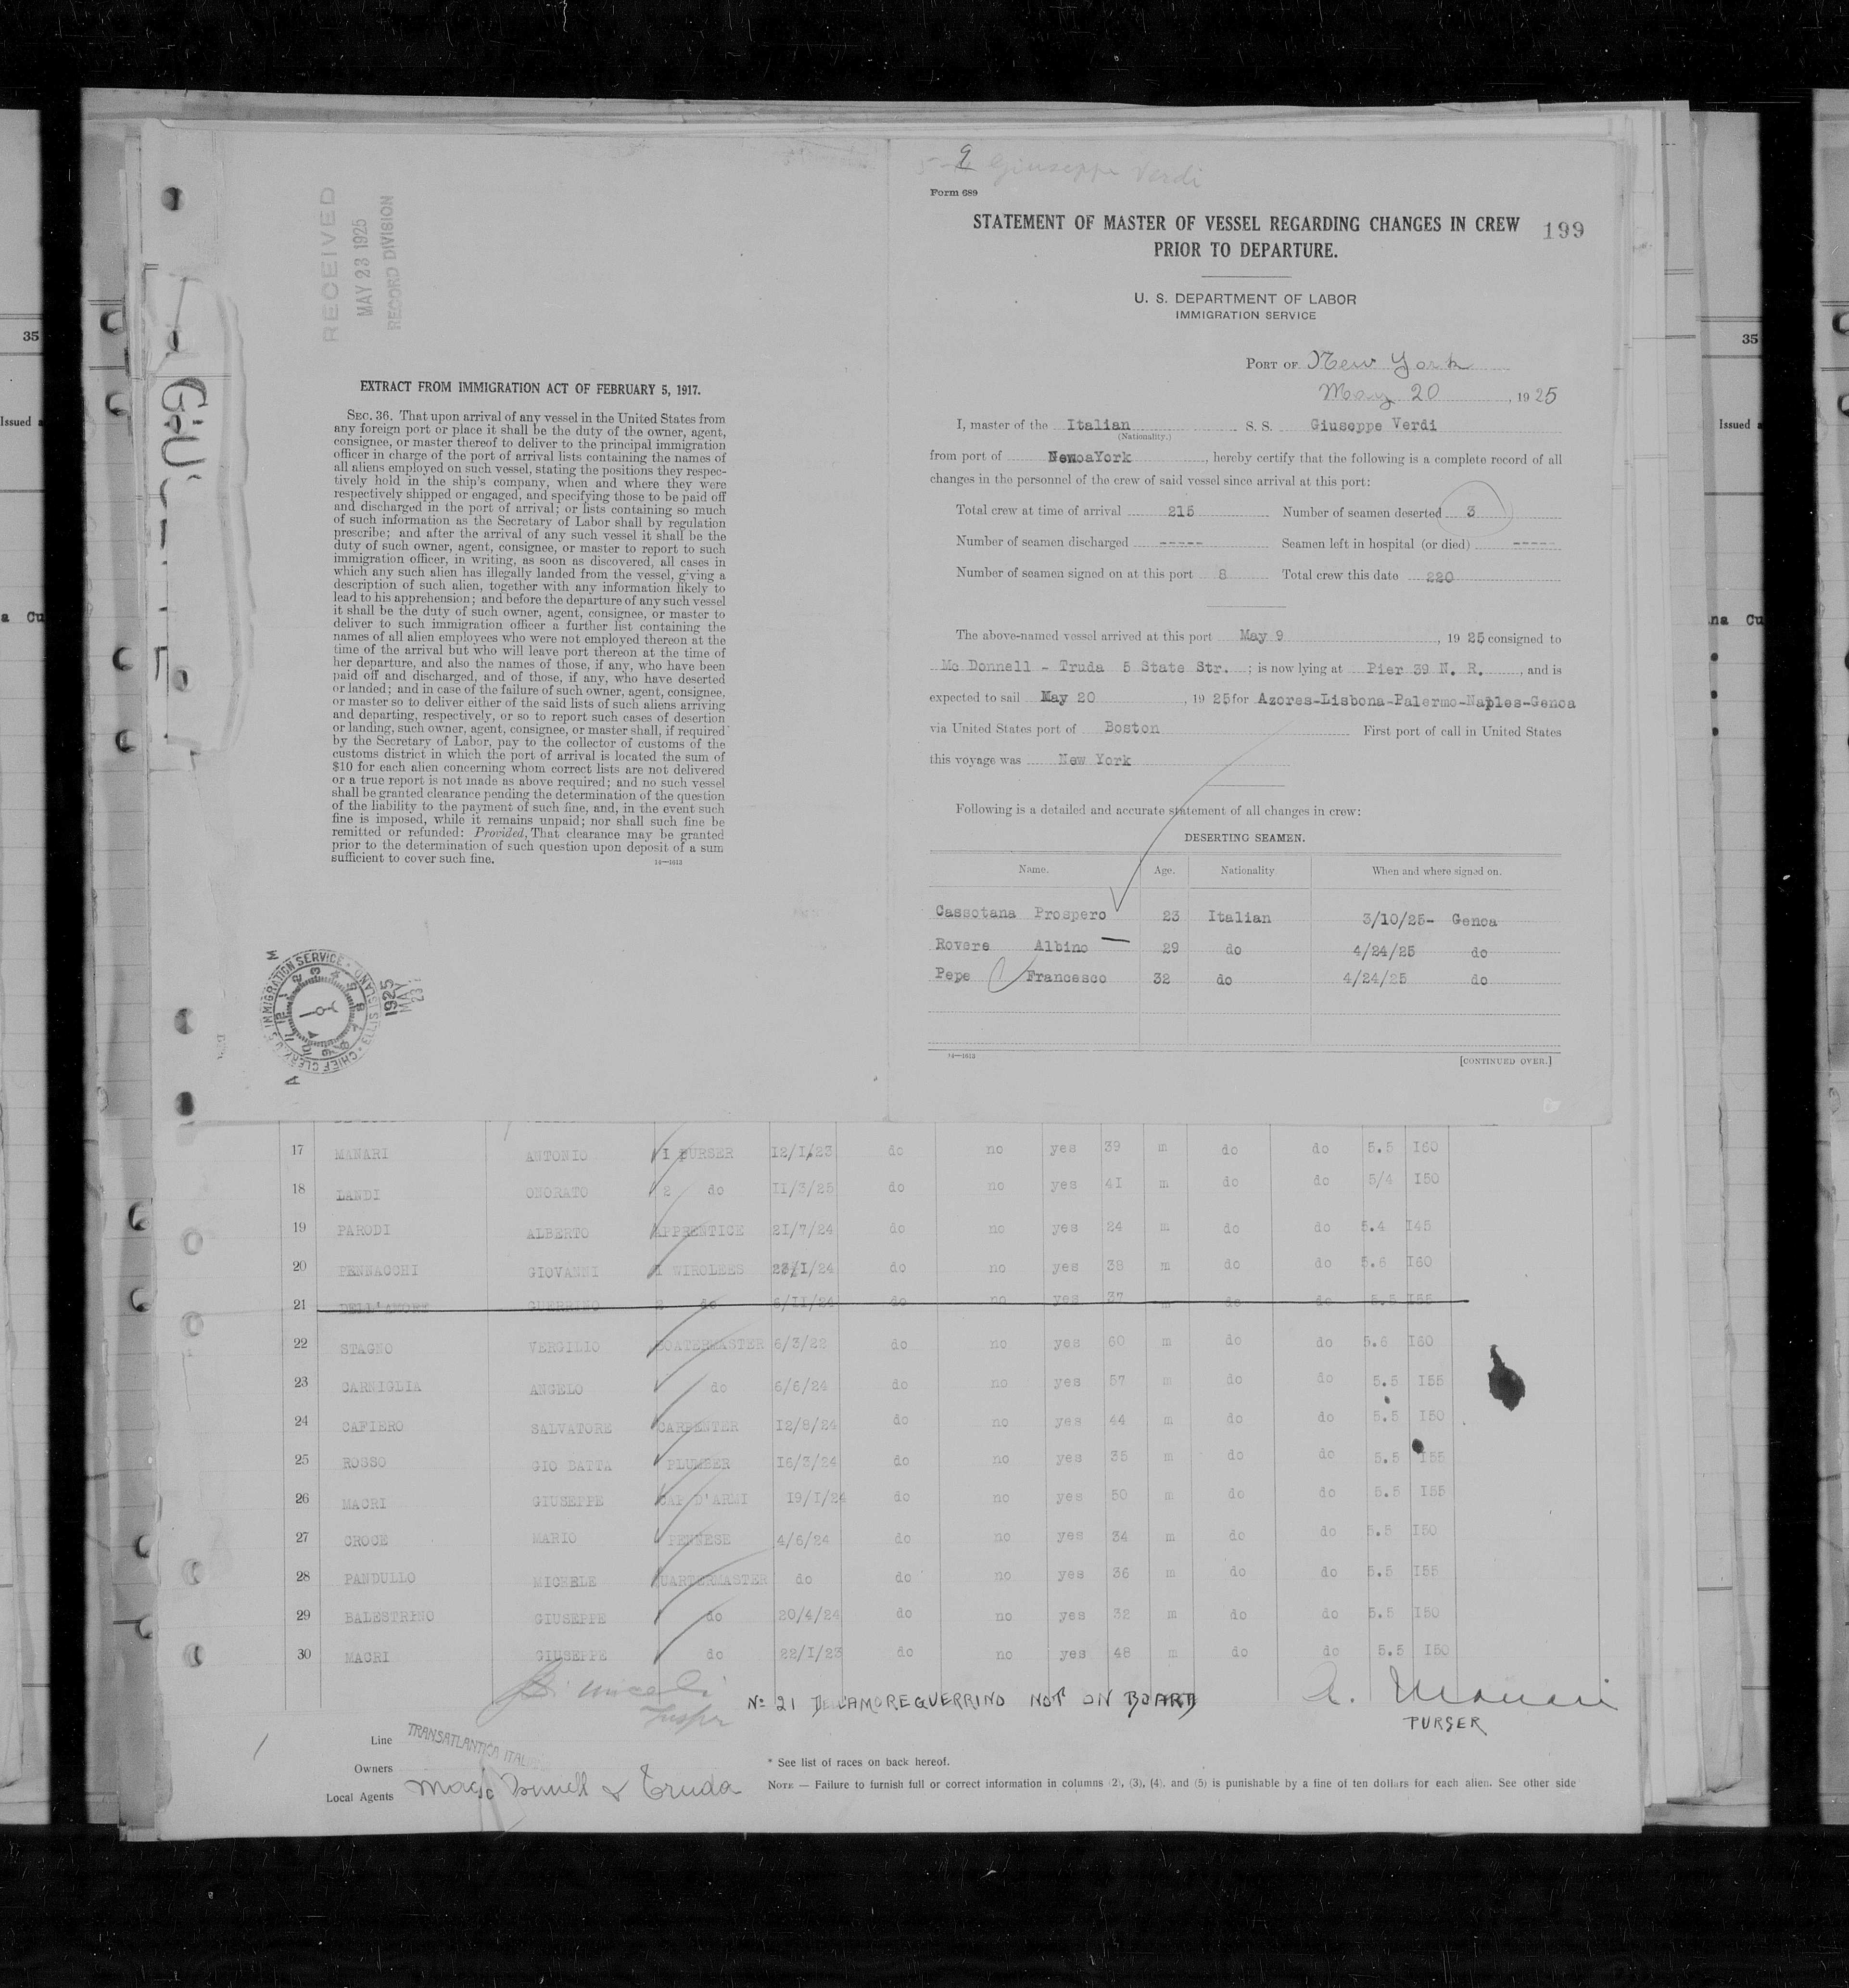 RECEIVED
MAY 23 1925
RECORD DIVISION
EXTRACT FROM IMMIGRATION ACT OF FEBRUARY 5, 1917.
SEC. 36. That upon arrival of any vessel in the United States from
any foreign port or place it shall be the duty of the owner, agent,
consignee, or master thereof to deliver to the principal immigration
officer in charge of the port of arrival lists containing the names of
all aliens employed on such vessel, stating the positions they respec-
tively hold in the ship's company, when and where they were
respectively shipped or engaged, and specifying those to be paid off
and discharged in the port of arrival; or lists containing so much
of such information as the Secretary of Labor shall by regulation
prescribe; and after the arrival of any such vessel it shall be the
duty of such owner, agent, consignee, or master to report to such
immigration officer, in writing, as soon as discovered, all cases in
which any such alien has illegally landed from the vessel, giving a
description of such alien, together with any information likely to
lead to his apprehension; and before the departure of any such vessel
it shall be the duty of such owner, agent, consignee, or master to
deliver to such immigration officer a further list containing the
names of all alien employees who were not employed thereon at the
time of the arrival but who will leave port thereon at the time of
her departure, and also the names of those, if any, who have been
paid off and discharged, and of those, if any, who have deserted
or landed; and in case of the failure of such owner, agent, consignee,
or master so to deliver either of the said lists of such aliens arriving
and departing, respectively, or so to report such cases of desertion
or landing, such owner, agent, consignee, or master shall, if required
by the Secretary of Labor, pay to the collector of customs of the
customs district in which the port of arrival is located the sum of
$10 for each alien concerning whom correct lists are not delivered
or a true report is not made as above required; and no such vessel
shall be granted clearance pending the determination of the question
of the liability to the payment of such fine, and, in the event such
fine is imposed, while it remains unpaid; nor shall such fine be
remitted or refunded: Provided, That clearance may be granted
prior to the determination of such question upon deposit of a sum
sufficient to cover such fine.
14—1613
CHIEF CLERK U.S. IMMIGRATION SERVICE · ELLIS ISLAND
1925
MAY
23
9
Giuseppe Verdi
Form 689
STATEMENT OF MASTER OF VESSEL REGARDING CHANGES IN CREW
PRIOR TO DEPARTURE.
199
U. S. DEPARTMENT OF LABOR
IMMIGRATION SERVICE
PORT OF New York
May 20, 1925
I, master of the Italian S. S. Giuseppe Verdi
(Nationality.)
from port of New York, hereby certify that the following is a complete record of all
changes in the personnel of the crew of said vessel since arrival at this port:
Total crew at time of arrival 215 Number of seamen deserted 3
Number of seamen discharged ----- Seamen left in hospital (or died) -----
Number of seamen signed on at this port 8 Total crew this date 220
The above-named vessel arrived at this port May 9, 1925 consigned to
Mc Donnell - Truda 5 State Str. ; is now lying at Pier 39 N. R., and is
expected to sail May 20, 1925 for Azores-Lisbona-Palermo-Naples-Genoa
via United States port of Boston First port of call in United States
this voyage was New York
Following is a detailed and accurate statement of all changes in crew:
DESERTING SEAMEN.
Name. Age. Nationality When and where signed on.
Cassotana Prospero 23 Italian 3/10/25- Genoa
Rovere Albino 29 do 4/24/25 do
Pepe Francesco 32 do 4/24/25 do
14—1613
[CONTINUED OVER.]
17 MANARI ANTONIO I PURSER I2/I/23 do no yes 39 m do do 5.5 I60
18 LANDI ONORATO 2 do II/3/25 do no yes 4I m do do 5/4 I50
19 PARODI ALBERTO APPRENTICE 2I/7/24 do no yes 24 m do do 5.4 I45
20 PENNACCHI GIOVANNI I WIROLEES 23/I/24 do no yes 38 m do do 5.6 I60
21 DELL'AMORE GUERRINO 2 do 6/II/24 do no yes 37 m do do 5.5 I55
22 STAGNO VERGILIO BOATERMASTER 6/3/22 do no yes 60 m do do 5.6 I60
23 CARNIGLIA ANGELO do 6/6/24 do no yes 57 m do do 5.5 I55
24 CAFIERO SALVATORE CARPENTER I2/8/24 do no yes 44 m do do 5.5 I50
25 ROSSO GIO BATTA PLUMBER I6/3/24 do no yes 35 m do do 5.5 I55
26 MACRI GIUSEPPE CAP D'ARMI I9/I/24 do no yes 50 m do do 5.5 I55
27 CROCE MARIO PENNESE 4/6/24 do no yes 34 m do do 5.5 I50
28 PANDULLO MICHELE QUARTERMASTER do do no yes 36 m do do 5.5 I55
29 BALESTRINO GIUSEPPE do 20/4/24 do no yes 32 m do do 5.5 I50
30 MACRI GIUSEPPE do 22/I/23 do no yes 48 m do do 5.5 I50
No 21 DELL'AMORE GUERRINO NOT ON BOARD
A. Manari
PURSER
Line TRANSATLANTICA ITALIANA
Owners
Local Agents MacDonnell & Truda
* See list of races on back hereof.
NOTE — Failure to furnish full or correct information in columns (2), (3), (4), and (5) is punishable by a fine of ten dollars for each alien. See other side
35
Issued
35
Issued a